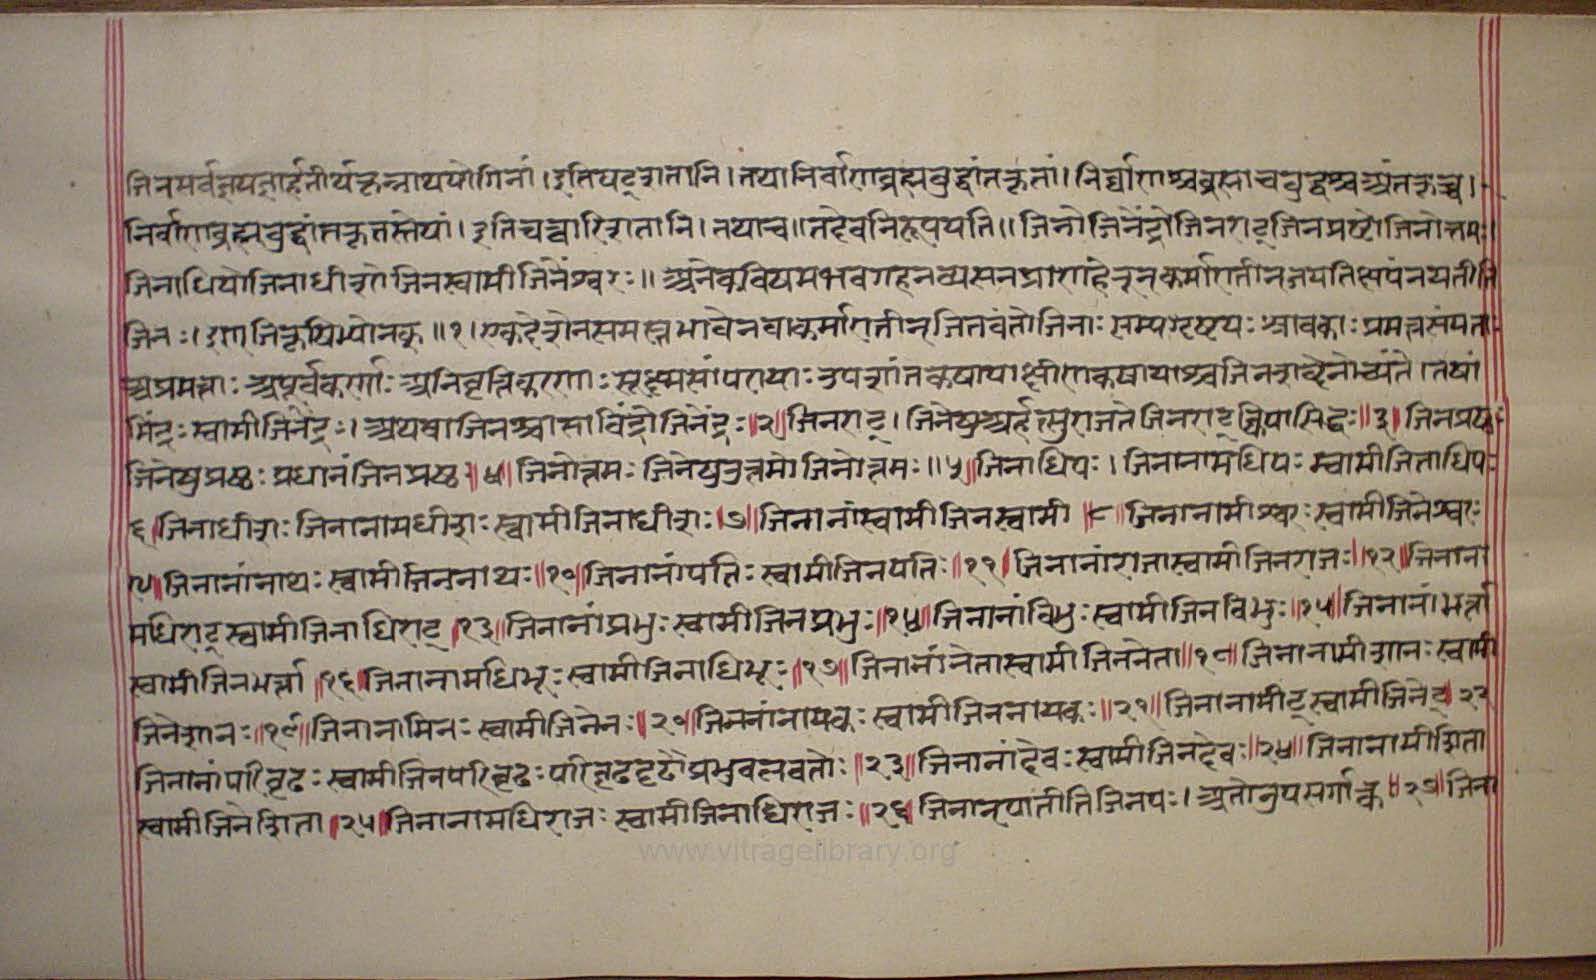 जिनसर्वज्ञयज्ञार्हतीर्थकृन्नाथयोगिनां। इतिषट्शतानि। तथानिर्वाणब्रह्मबुद्धांतकृतां। निर्वाणश्चब्रह्माचबुद्धश्चअंतकृच्च।
निर्वाणब्रह्मबुद्धांतकृतस्तेषां। इतिचत्वारिशतानि। तथाच॥ तदेवनिरूपयति॥ जिनोजिनेंद्रोजिनराट्जिनप्रष्टोजिनोत्तमः।
जिनाधिपोजिनाधीशोजिनस्वामीजिनेश्वरः॥ अनेकविषमभवगहनव्यसनप्रापणहेतून्कर्मारातीन्जयतिक्षयंनयतीति
जिनः। इण्जिकृषिभ्योनक्॥१। एकदेशेनसमस्तभावेनवाकर्मारातीन्जितवंतोजिनाः सम्यग्दृष्टयः श्रावकाः प्रमत्तसंयता
अप्रमत्ताः अपूर्वकरणाः अनिवृत्तिकरणाः सूक्ष्मसांपरायाः उपशांतकषायाक्षीणकषायाश्चजिनशब्देनोच्यंते। तेषां
मिंद्रः स्वामीजिनेंद्रः। अथवाजिनश्चासाविंद्रोजिनेंद्रः॥२॥ जिनराट्। जिनेषुअर्हत्सुराजतेजिनराट् क्विपासिद्धः॥३॥ जिनप्रष्ठः
जिनेषुप्रष्ठः प्रधानंजिनप्रष्ठः॥४॥ जिनोत्तमः जिनेषुउत्तमोजिनोत्तमः॥५॥ जिनाधिपः। जिनानामधिपः स्वामीजिताधिपः
६॥ जिनाधीशः जिनानामधीशः स्वामीजिनाधीशः॥७॥ जिनानांस्वामीजिनस्वामी॥८॥ जिनानामीश्वरः स्वामीजिनेश्वरः
॥९॥ जिनानांनाथः स्वामीजिननाथः॥१०॥ जिनानांपतिः स्वामीजिनपतिः॥११॥ जिनानांराजास्वामीजिनराजः॥१२॥ जिनाना
मधिराट्स्वामीजिनाधिराट्॥१३॥ जिनानांप्रभुः स्वामीजिनप्रभुः॥१४॥ जिनानांविभुः स्वामीजिनविभुः॥१५॥ जिनानांभर्त्ता
स्वामीजिनभर्त्ता॥१६॥ जिनानामधिभूः स्वामीजिनाधिभूः॥१७॥ जिनानांनेतास्वामीजिननेता॥१८॥ जिनानामीशानः स्वामी
जिनेशानः॥१९॥ जिनानामिनः स्वामीजिनेनः॥२०॥ जिननांनायकः स्वामीजिननायकः॥२१॥ जिनानामीट्स्वामीजिनेट्॥२२
जिनानांपरिवृढः स्वामीजिनपरिवृढः परिवृढदृढौप्रभुबलवतोः॥२३॥ जिनानांदेवः स्वामीजिनदेवः॥२४॥ जिनानामीशिता
स्वामीजिनेशिता॥२५॥ जिनानामधिराजः स्वामीजिनाधिराजः॥२६॥ जिनान्पातीतिजिनपः। अतोनुपसर्गात्कः॥२७॥ जिना
www.vitragelibrary.org